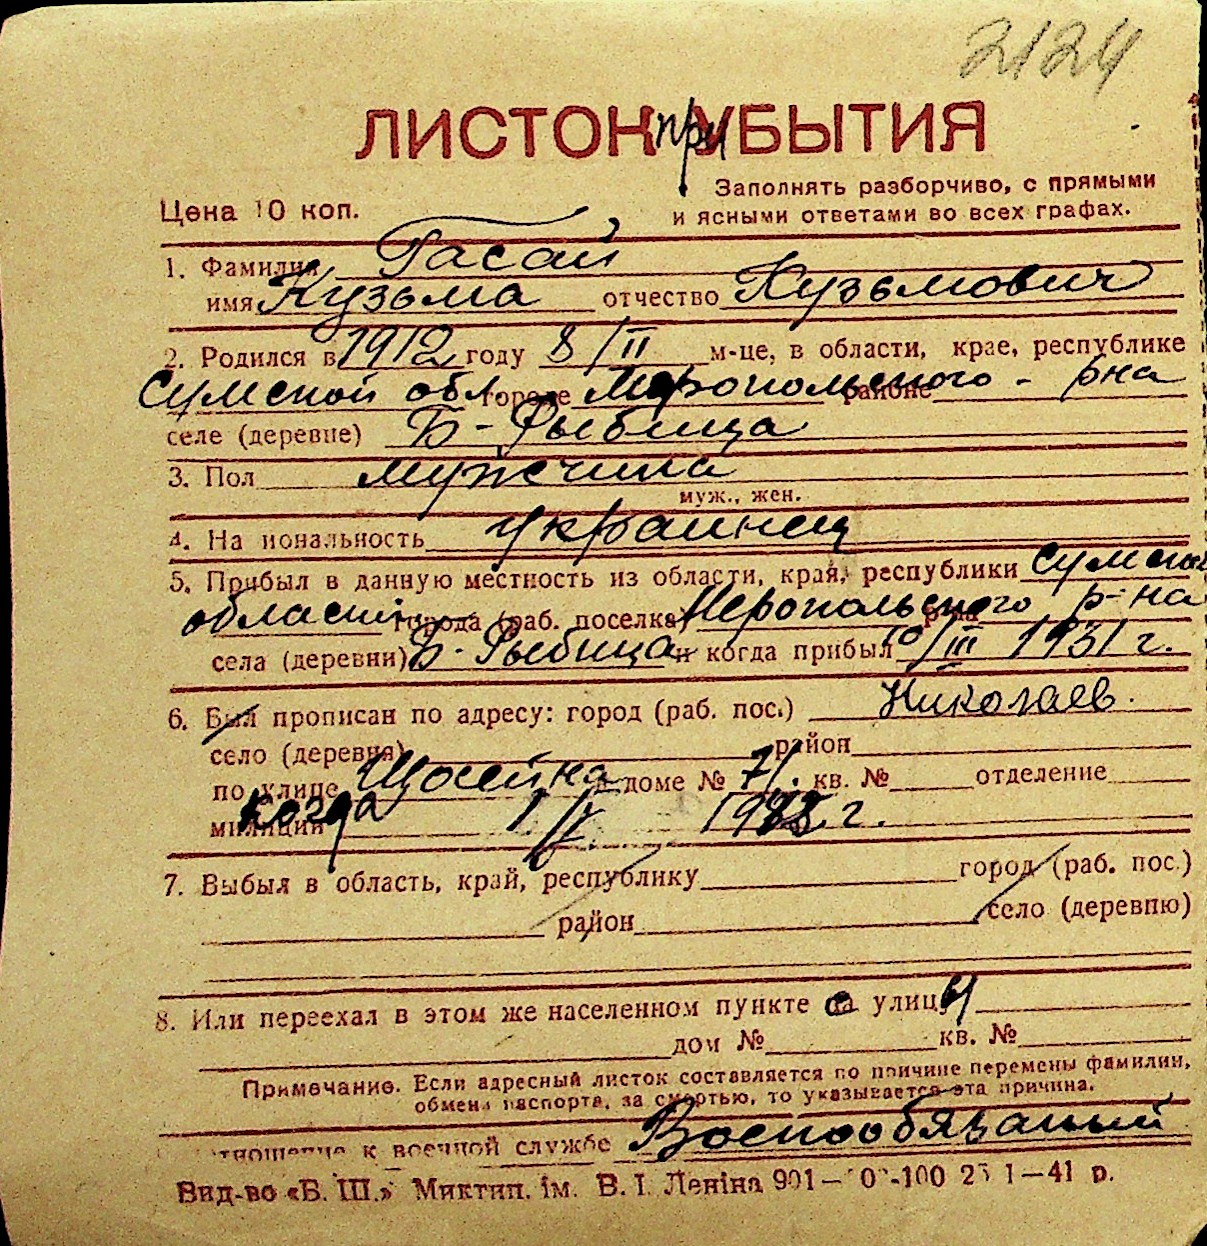 2124
ЛИСТОК при УБЫТИЯ
Цена 10 коп.
Заполнять разборчиво, с прямыми
и ясными ответами во всех графах.
1. Фамилия Гасай
имя Кузьма отчество Кузьмович
2. Родился в 1912 году 8/II м-це, в области, крае, республике
Сумской обл. городе Меропольского районе - рна
селе (деревне) Б-Рыбица
3. Пол мужчина
муж., жен.
4. На иональность украинец
5. Прибыл в данную местность из области, края, республики Сумской
области города (раб. поселка) Меропольского р-на р-на
села (деревни) Б-Рыбица и когда прибыл 10/III 1931 г.
6. Был прописан по адресу: город (раб. пос.) Николаев.
село (деревня) район
по улице в доме № 71. кв. № отделение
милиции когда г.
7. Выбыл в область, край, республику город (раб. пос.)
район село (деревню)
8. Или переехал в этом же населенном пункте с улицы
дом № кв. №
Примечание. Если адресный листок составляется по причине перемены фамилии,
обмена паспорта, за смертью, то указывается эта причина.
тношение к военной службе Военнообязаный
Вид-во «Б. Ш.» Миктип. ім. В. І. Леніна 901— 0 -100 25 1—41 р.